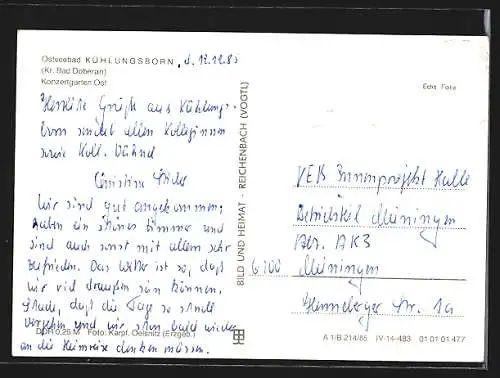 Ostseebad KÜHLUNGSBORN, d. 12.12.85
(Kr. Bad Doberan)
Konzertgarten Ost
Echt Foto
Herzliche Grüße aus Kühlungs-
born sendet allen Kolleginnen
sowie Koll.
Christine
Wir sind gut angekommen,
haben ein schönes Zimmer und
sind auch sonst mit allem sehr
zufrieden. Das Wetter ist so, daß
wir viel draußen sein können.
Schade, daß die Tage so schnell
vergehen und wir schon bald wieder
an die Heimreise denken müssen.
DDR 0,25 M Foto: Karpf, Oelsnitz (Erzgeb.)
BILD UND HEIMAT · REICHENBACH (VOGTL)
VEB Binnenprojekt Halle
Betriebsteil Meiningen
Abt. AK3
6100 Meiningen
Henneberger Str. 1a
A 1/B 214/85 IV-14-483 01 01 01 477